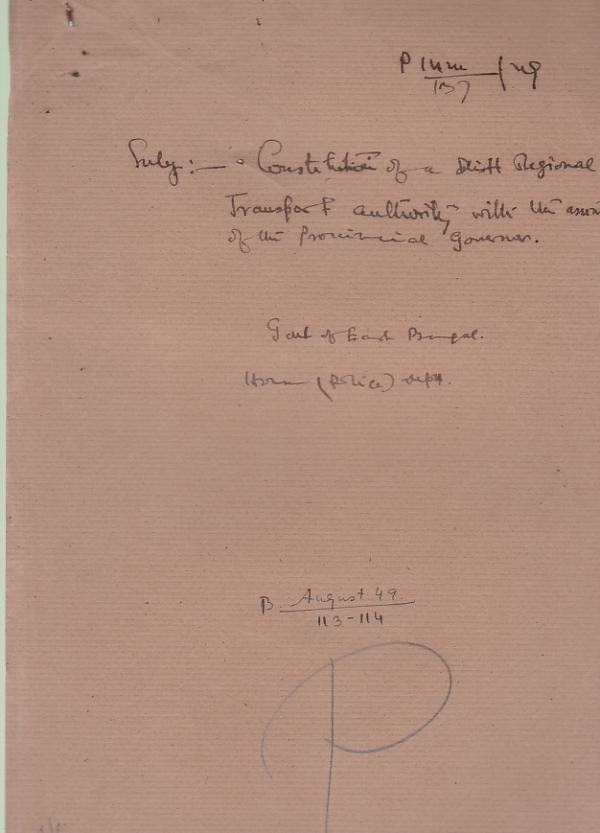 Subj:— Constitution of a Distt Regional
Transport authority with the
of the Provincial Governor.
Govt of East Bengal.
Home (Police) dept.
B. August 49.
113-114
P